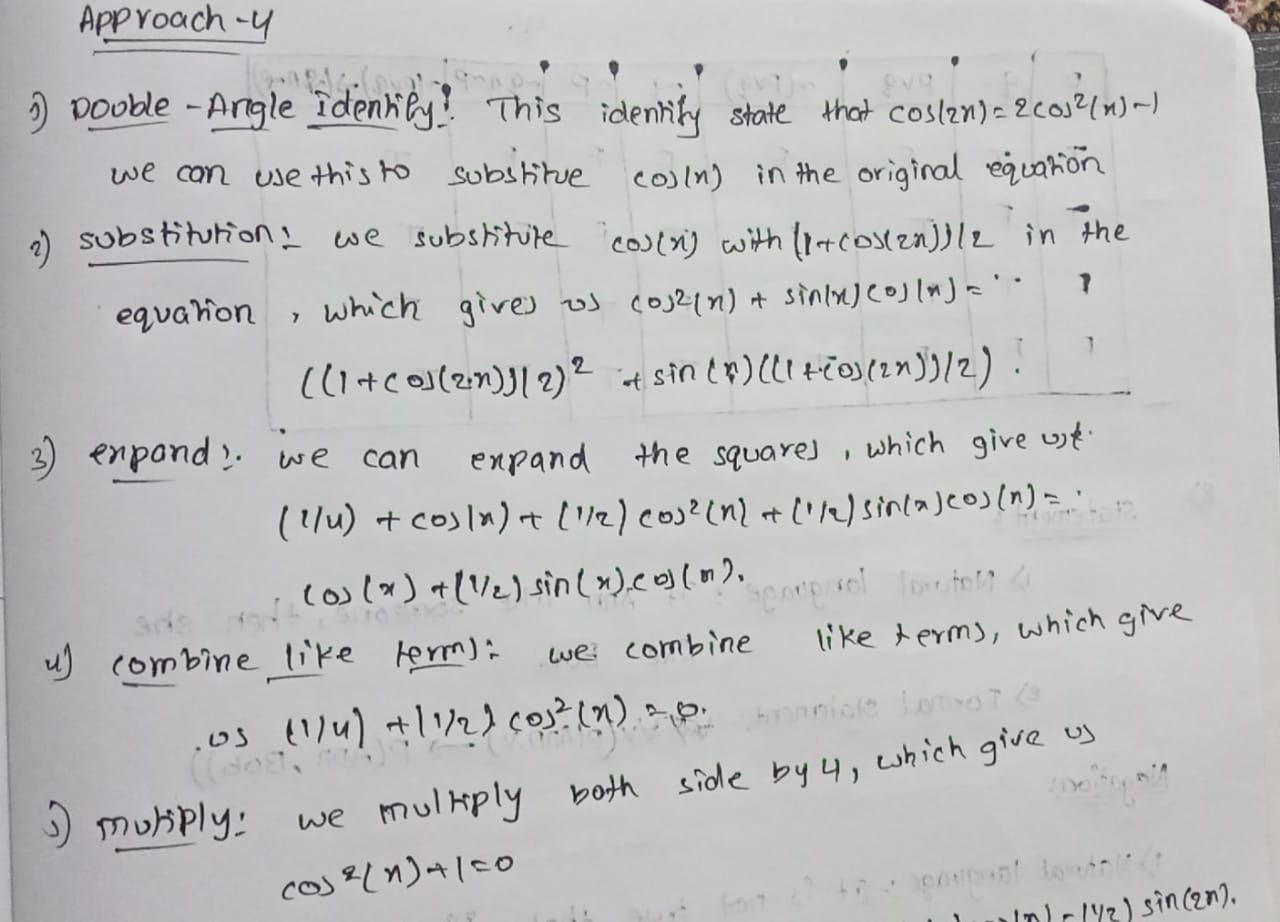 Approach-4
1) Double-Angle identify: This identify state that cos(2x)=2cos²(x)-1
we can use this to substitue cos(x) in the original equation
2) substitution: we substitute cos(x) with (1+cos(2x))/2 in the
equation, which gives us cos²(x) + sin(x)cos(x)=
((1+cos(2x))/2)² + sin(x)((1+cos(2x))/2).
3) expand: we can expand the squares, which give us
(1/4) + cos(x) + (1/2) cos²(x) + (1/2) sin(x)cos(x)=
cos(x) + (1/2) sin(x).cos(x).
4) combine like terms: we combine like terms, which give
us (1/4) + (1/2) cos²(x) = 0.
5) multiply: we multiply both side by 4, which give us
cos²(x)+1=0
sin(2x).